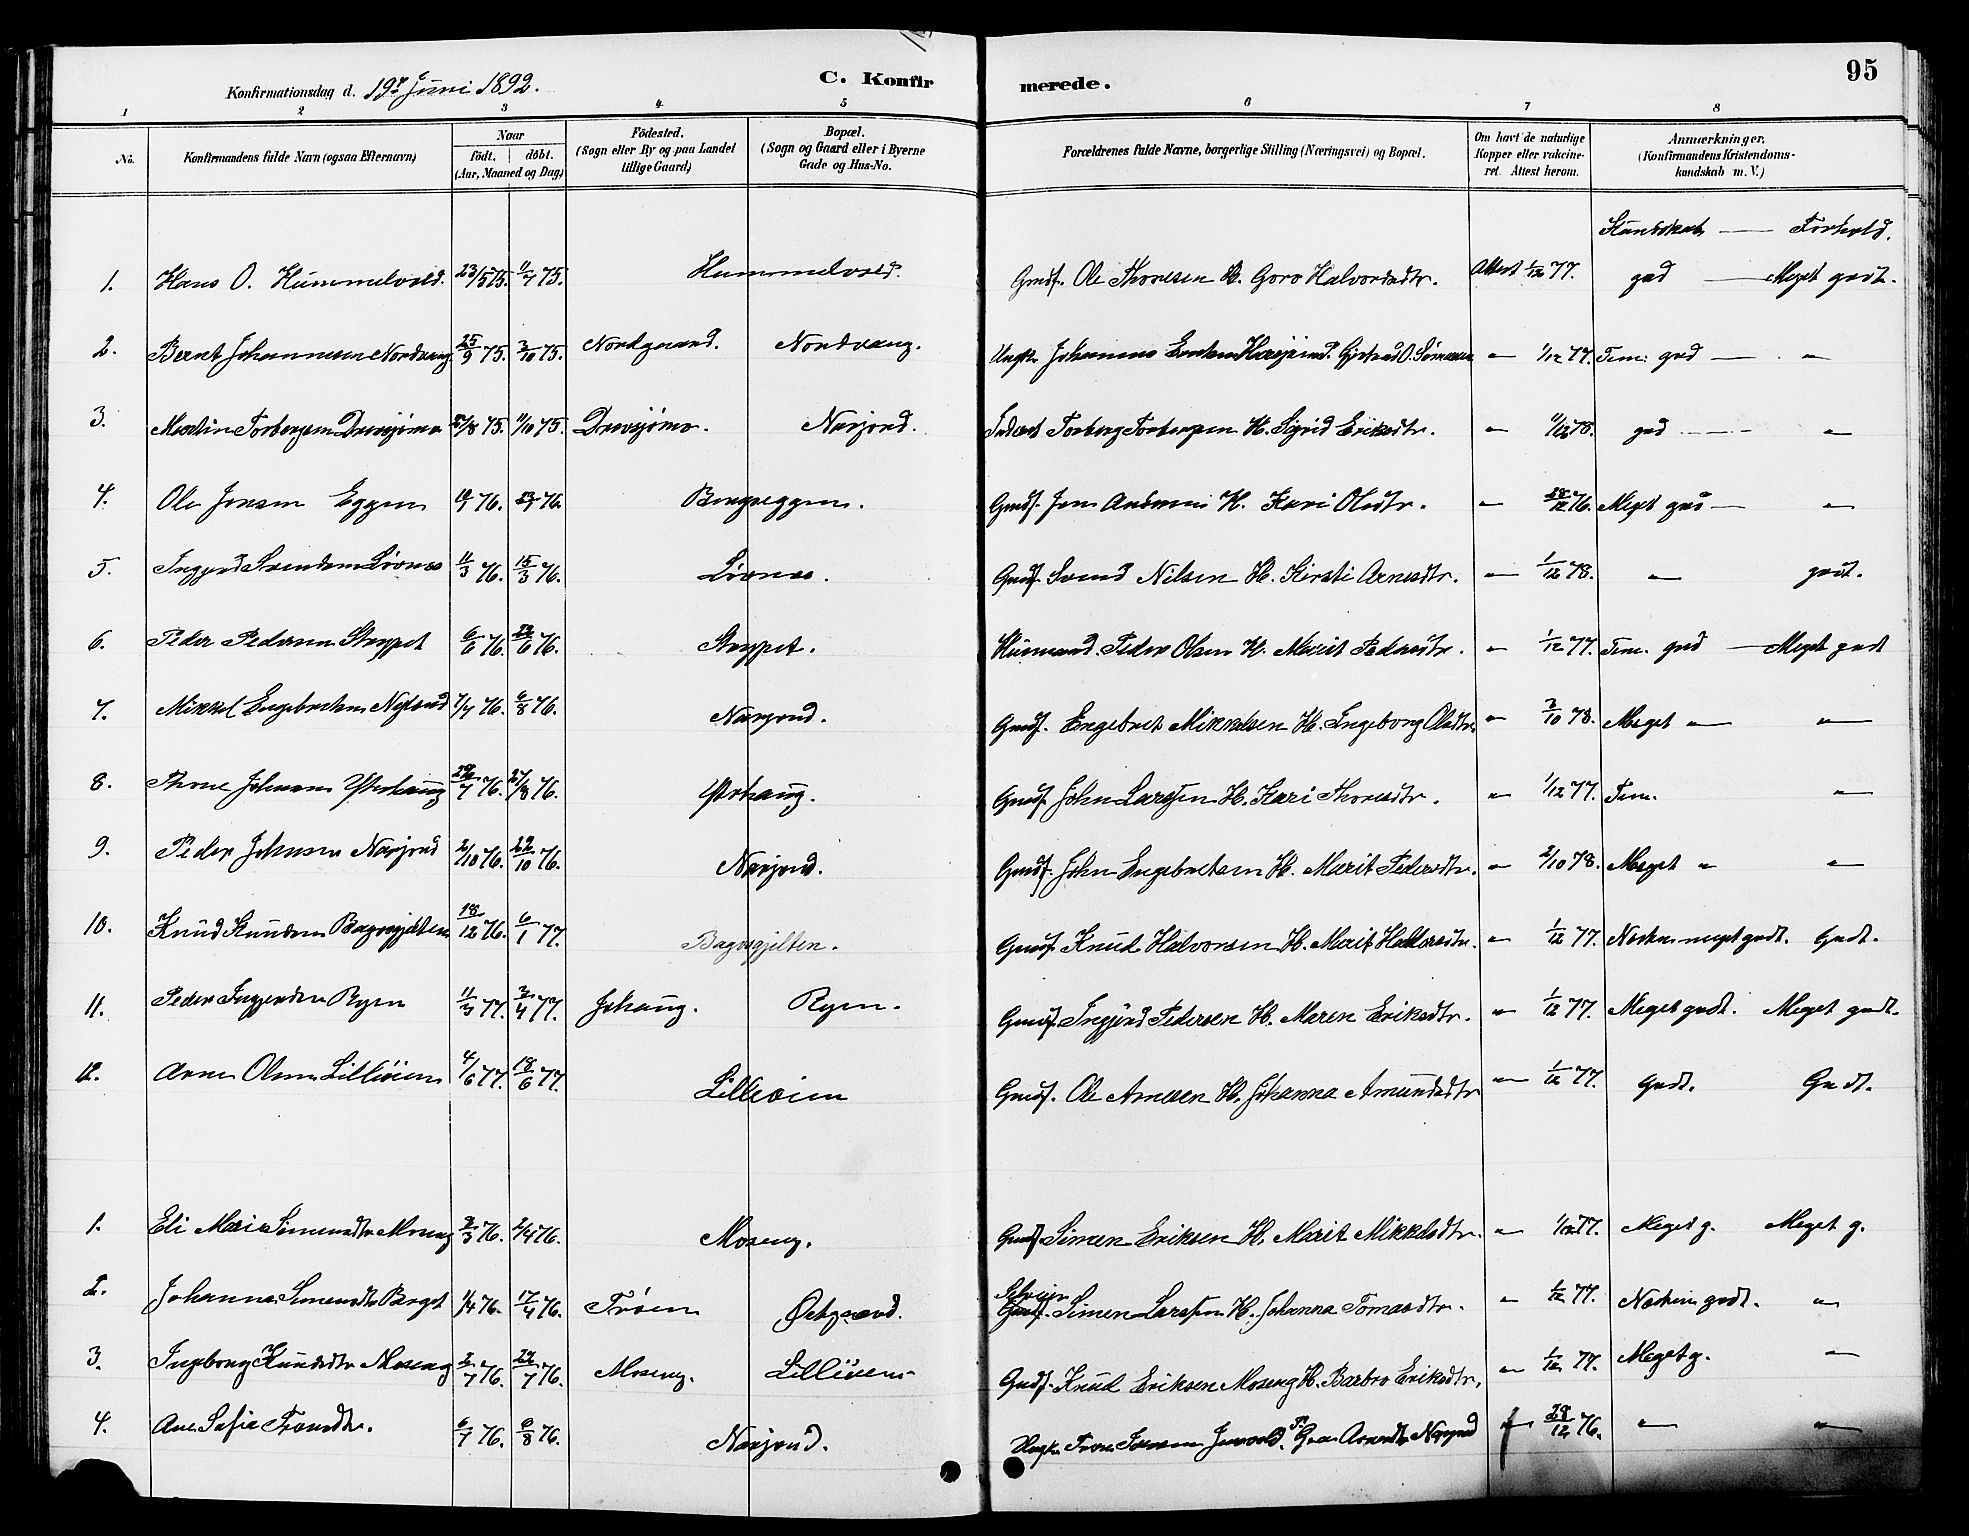 95
Konfirmationsdag d. 19de Juni 1892.
C. Konfirmerede.
1 2 3 4 5 6 7 8
No. Konfirmandens fulde Navn (ogsaa Efternavn) Naar født. døbt. (Aar, Maaned og Dag) Fødested. (Sogn eller By og paa Landet tillige Gaard) Bopæl. (Sogn og Gaard eller i Byerne Gade og Hus-No. Forældrenes fulde Navne, borgerlige Stilling (Næringsvei) og Bopæl. Om havt de naturlige Kopper eller vakcineret. Attest herom. Anmærkninger. (Konfirmandens Kristendomskundskab m. V.)
Kundskab — Forhold.
1. Hans O. Hummelvold. 23/5 75. 11/7 75. Hummelvold. Gmdf. Ole Thoresen H. Goro Halvorsdtr. Attest 1/12 77. god — Meget godt.
2. Bernt Johannesen Nordvang 25/9 75. 3/10 75. Nordgaard. Nordvang. Ungk. Johannes " 1/12 77. Tem: god — "
3. Martin Torbergsen Drevsjømo 11/10 75. Drevsjømo. Narjord. Torberg Torbergsen H. Sigrid Eriksdtr. " 11/12 78. god — "
4. Ole Jonsen Eggen 76. 76. Bergseggen. Gmdf. Jon Andersen H. Kari Olsdtr. " 28/12 76. Meget god — "
5. Ingjerd Svendsen Lisønæs 11/3 76. 15/3 76. Gmdf. Svend Nilsen H. Kirsti Arnesdtr. " 1/12 78. " godt.
6. Peder Pedersen Støypet 6/6 76. 76. Støypet. Husmand. Peder Olsen H. Marit Pedersdtr. " 1/12 77. Tem. god — Meget godt
7. Mikkel Engebretsen Nyland 1/7 76. 6/8 76. Narjord. Gmdf. Engebret Mikkelsen H. Ingeborg Olsdtr. " 2/10 78. Meget " "
8. Thore Johnsen Ystehaug 76. 27/8 76. Ystehaug. Gmdf. John Larssen H. Kari Thoresdtr. " 1/12 77. Tem. "
9. Peder Johnsen Narjord 2/10 76. 22/10 76. Narjord. Gmdf. John Engebretsen H. Marit Pedersdtr. " 2/10 78. Meget " "
10. Knud Knudsen Bagosgjelten 18/12 76. 6/1 77. Bagosgjelten. Gmdf. Knud Halvorsen H. Marit " 1/12 77. Næsten meget godt. Godt.
11. Peder Ingjerdsen Ryen 11/3 77. 3/4 77. Johaug. Ryen. Gmdf. Ingjerd Pedersen H. Maren Eriksdtr. " 1/12 77. Meget godt. Meget godt.
12. Arne Olsen Lilleøien 4/6 77. 18/6 77. Lilleøien Gmdf. Ole Arnesen H. Johanna Amundsdtr " 1/12 77. Godt. Godt.
1. Eli Marie Simensdtr Moseng 3/3 76. 2/4 76. Moseng. Gmdf. Simen Eriksen H. Marit Mikkelsdtr. " 1/12 77. Meget g. Meget g.
2. Johanna Simensdtr Berget 1/4 76. 17/4 76. Trøen Østgaard. Selveier Simen Larssen H. Johanna Tomasdtr. " 1/12 77. Næsten godt. "
3. Ingeborg Knudsdtr Moseng 2/7 76. 22/7 76. Moseng. Lilleøien Gmdf. Knud Eriksen Moseng H. Barbro Eriksdtr. " 1/12 77. Meget g. "
4. Ane Sofie Tronsdtr. 6/7 76. 6/8 76. Narjord. Ungk. Tron 28/12 76. " "